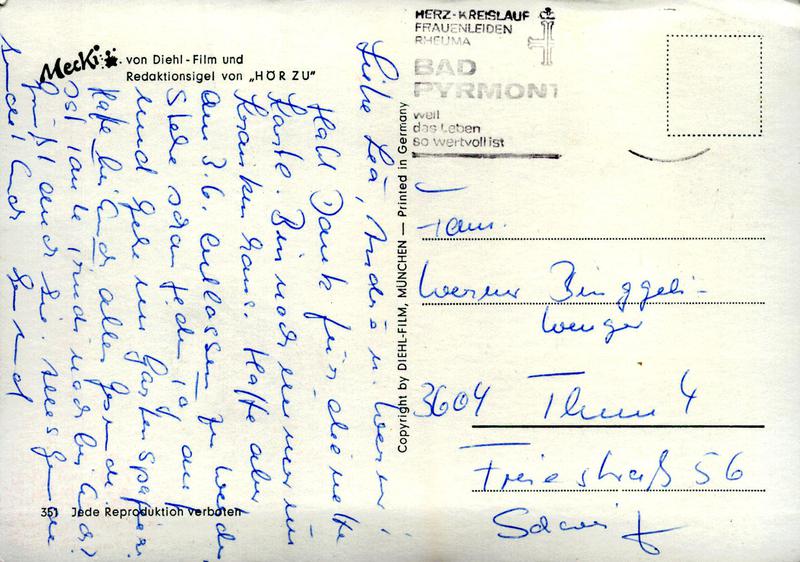 Mecki von Diehl-Film und
Redaktionsigel von „HÖR ZU"
Liebe Lea, Andrea u. Werner!
Hab Dank für die nette
Karte. Bin noch immer im
Krankenhaus. Hoffe aber
am 3.6. entlassen zu werden.
Stehe schon jeden Tag auf
und gehe im Garten spazieren.
Hoffe bei Euch alles gesund.
Ist Tante Trudi noch bei Euch?
Grüßt auch sie. Alles Gute
Copyright by DIEHL-FILM, MÜNCHEN — Printed in Germany
351 Jede Reproduktion verboten
HERZ-KREISLAUF
FRAUENLEIDEN
RHEUMA
BAD
PYRMONT
weil
das Leben
so wertvoll ist
Fam.
Werner Binggeli-
Wenger
3604 Thun 4
Freiestraße 56
Schweiz